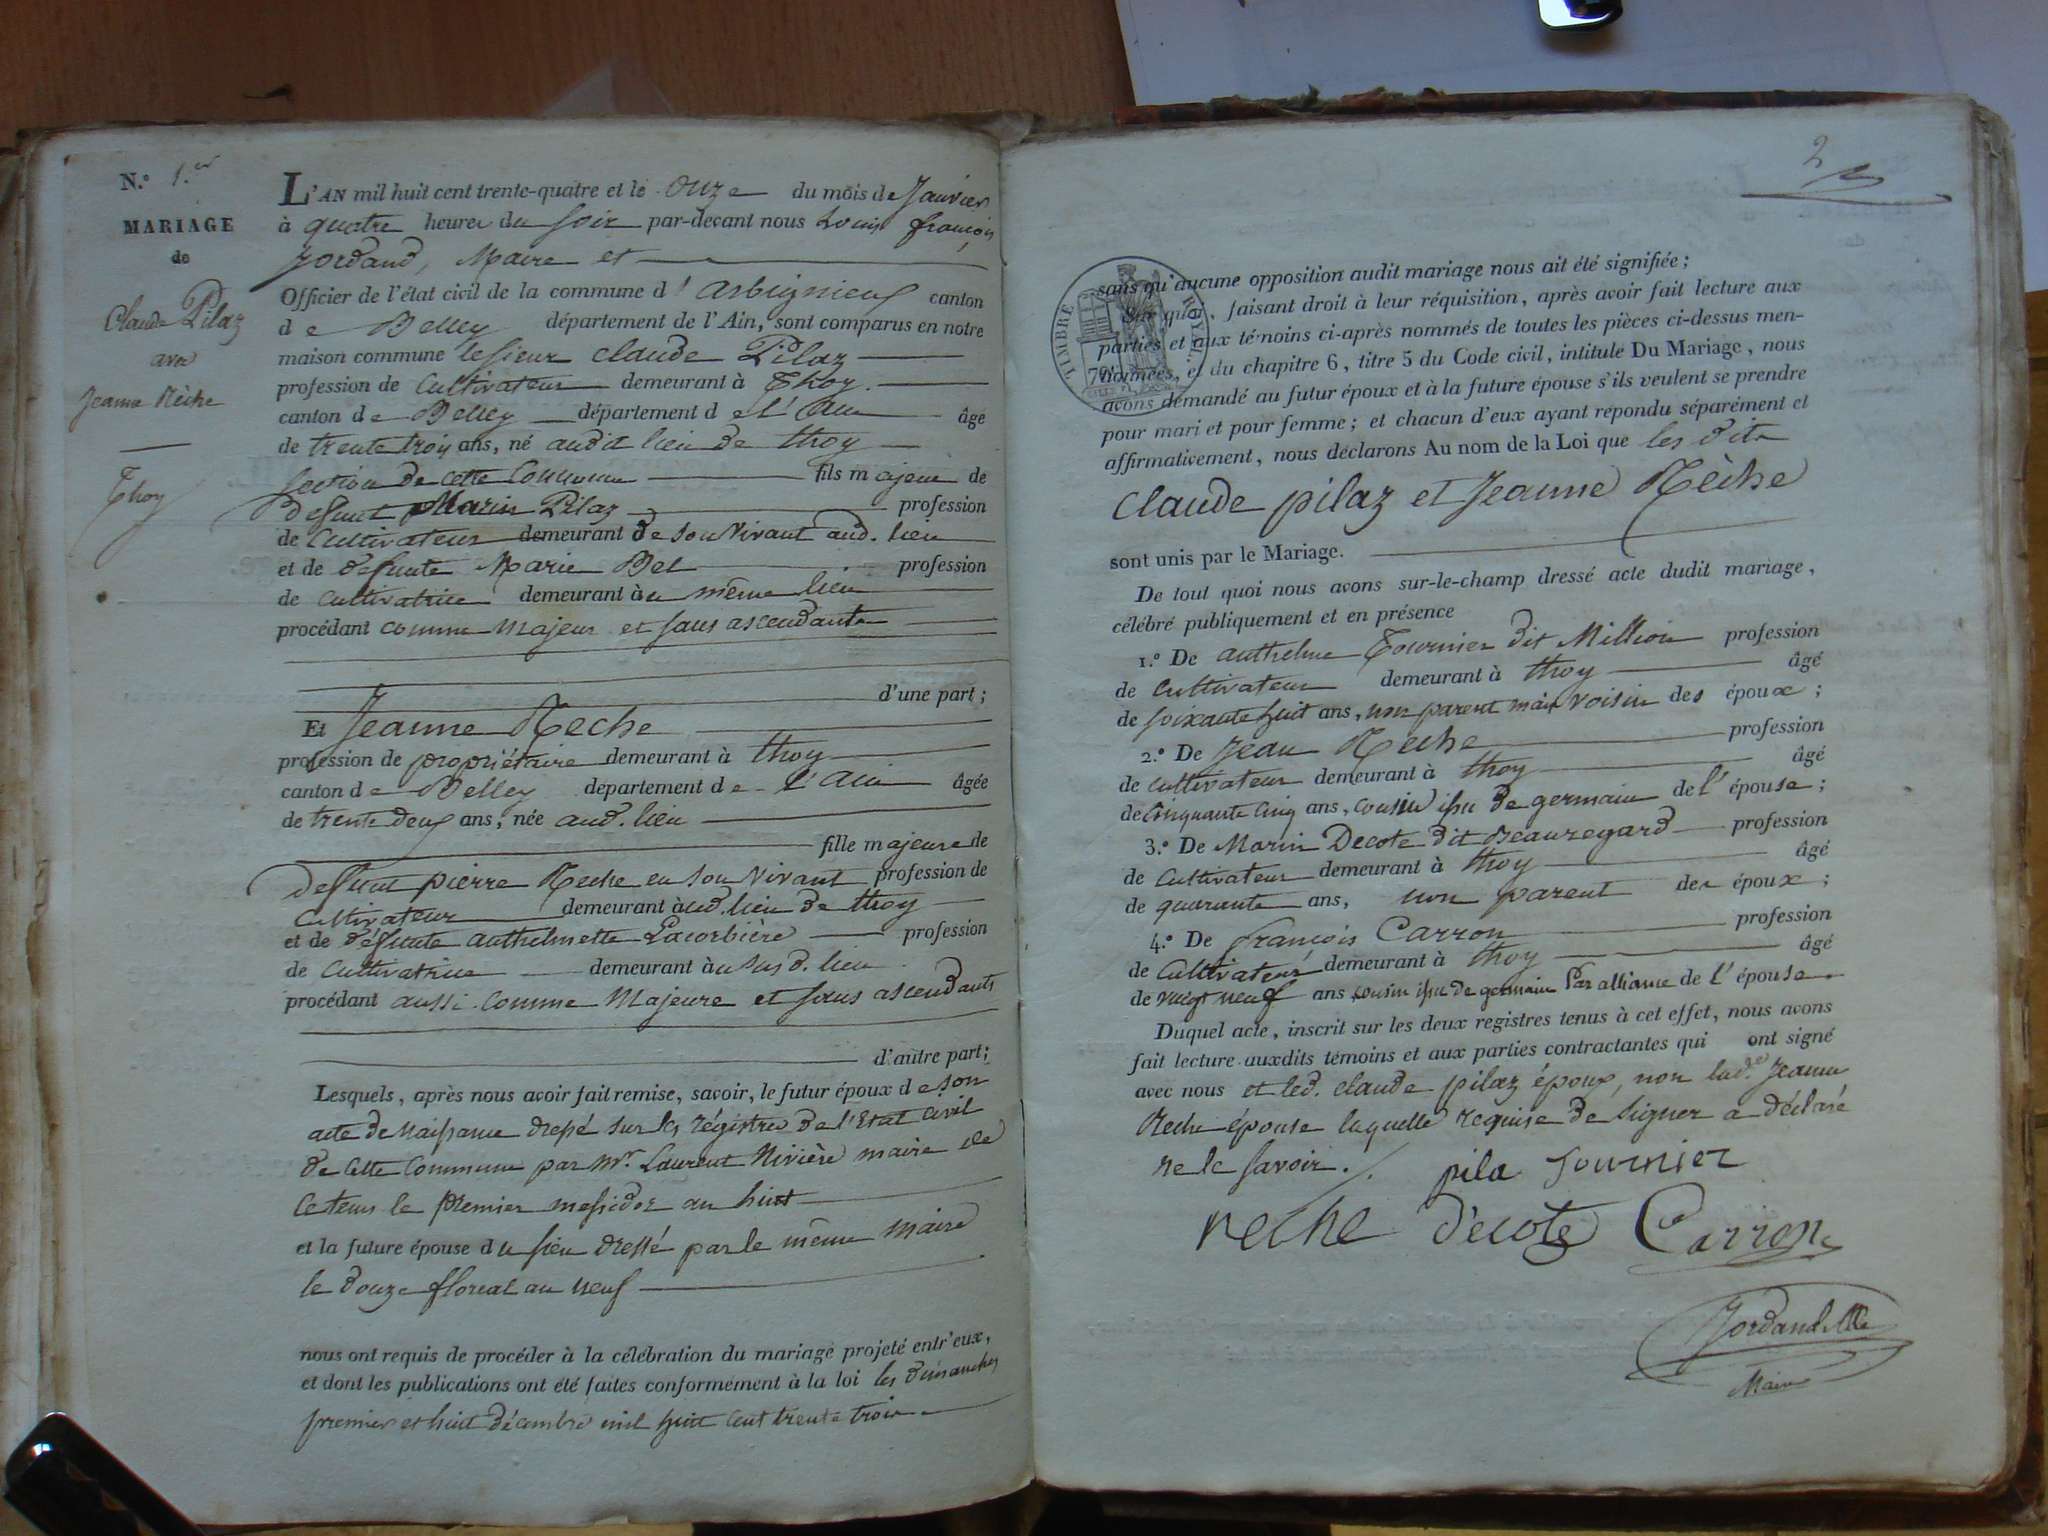 N.º 1.er
MARIAGE
de
Claude Pilaz
avec
Jeanne Rèche
Thoy
L'AN mil huit cent trente-quatre et le onze du mois de Janvier
à quatre heures du soir par-devant nous Louis françois
Jordand, Maire et
Officier de l'état civil de la commune d'Arbignieux canton
de Belley département de l'Ain, sont comparus en notre
maison commune le sieur Claude Pilaz
profession de Cultivateur demeurant à Thoy.
canton de Belley département de l'Ain âgé
de trente trois ans, né audit lieu de thoy
section de cette Commune fils majeur de
défunt Marin Pilaz profession
de Cultivateur demeurant de son vivant aud. lieu
et de défunte Marie Bel profession
de Cultivatrice demeurant au même lieu
procédant comme Majeur et sans ascendants
d'une part;
Et Jeanne Reche
profession de propriétaire demeurant à thoy
canton de Belley département de l'Ain âgée
de trente deux ans, née aud. lieu
fille majeure de
défunt pierre Reche en son vivant profession de
Cultivateur demeurant aud. lieu de thoy
et de défunte anthelmette Lacorbière profession
de Cultivatrice demeurant au sus d. lieu
procédant aussi comme Majeure et sans ascendants
d'autre part;
Lesquels, après nous avoir fait remise, savoir, le futur époux de son
acte de Naissance dressé sur les régistres de l'Etat Civil
de cette Commune par Mr. Laurent Rivière maire de
ce tems le premier messidor an huit
et la future épouse du sien dressé par le même maire
le douze floreal an neuf
nous ont requis de procéder à la célébration du mariage projeté entr'eux,
et dont les publications ont été faites conformément à la loi les dimanches
premier et huit décembre mil huit cent trente trois
2
TIMBRE ROYAL
sans qu'aucune opposition audit mariage nous ait été signifiée;
Sur quoi, faisant droit à leur réquisition, après avoir fait lecture aux
parties et aux témoins ci-après nommés de toutes les pièces ci-dessus men-
tionnées, et du chapitre 6, titre 5 du Code civil, intitulé Du Mariage, nous
avons demandé au futur époux et à la future épouse s'ils veulent se prendre
pour mari et pour femme; et chacun d'eux ayant répondu séparément et
affirmativement, nous déclarons Au nom de la Loi que les dits
Claude pilaz et Jeanne Rèche
sont unis par le Mariage.
De tout quoi nous avons sur-le-champ dressé acte dudit mariage,
célébré publiquement et en présence
1.º De anthelme Fournier dit Million profession
de Cultivateur demeurant à thoy âgé
de soixante huit ans, non parent mais voisin des époux;
2.º De Jean Reche profession
de cultivateur demeurant à thoy âgé
de Cinquante Cinq ans, cousin issu de germain de l'épouse;
3.º De Marin Decote dit Beauregard profession
de Cultivateur demeurant à thoy âgé
de quarante ans, non parent des époux;
4.º De françois Carron profession
de Cultivateur demeurant à thoy âgé
de vingt neuf ans cousin issu de germain Par alliance de l'épouse
Duquel acte, inscrit sur les deux registres tenus à cet effet, nous avons
fait lecture auxdits témoins et aux parties contractantes qui ont signé
avec nous et led. Claude pilaz époux, non lad.e Jeanne
Reche épouse laquelle requise de signer a déclaré
ne le savoir.
pila fournier
reche decote Carron
Jordand
Maire